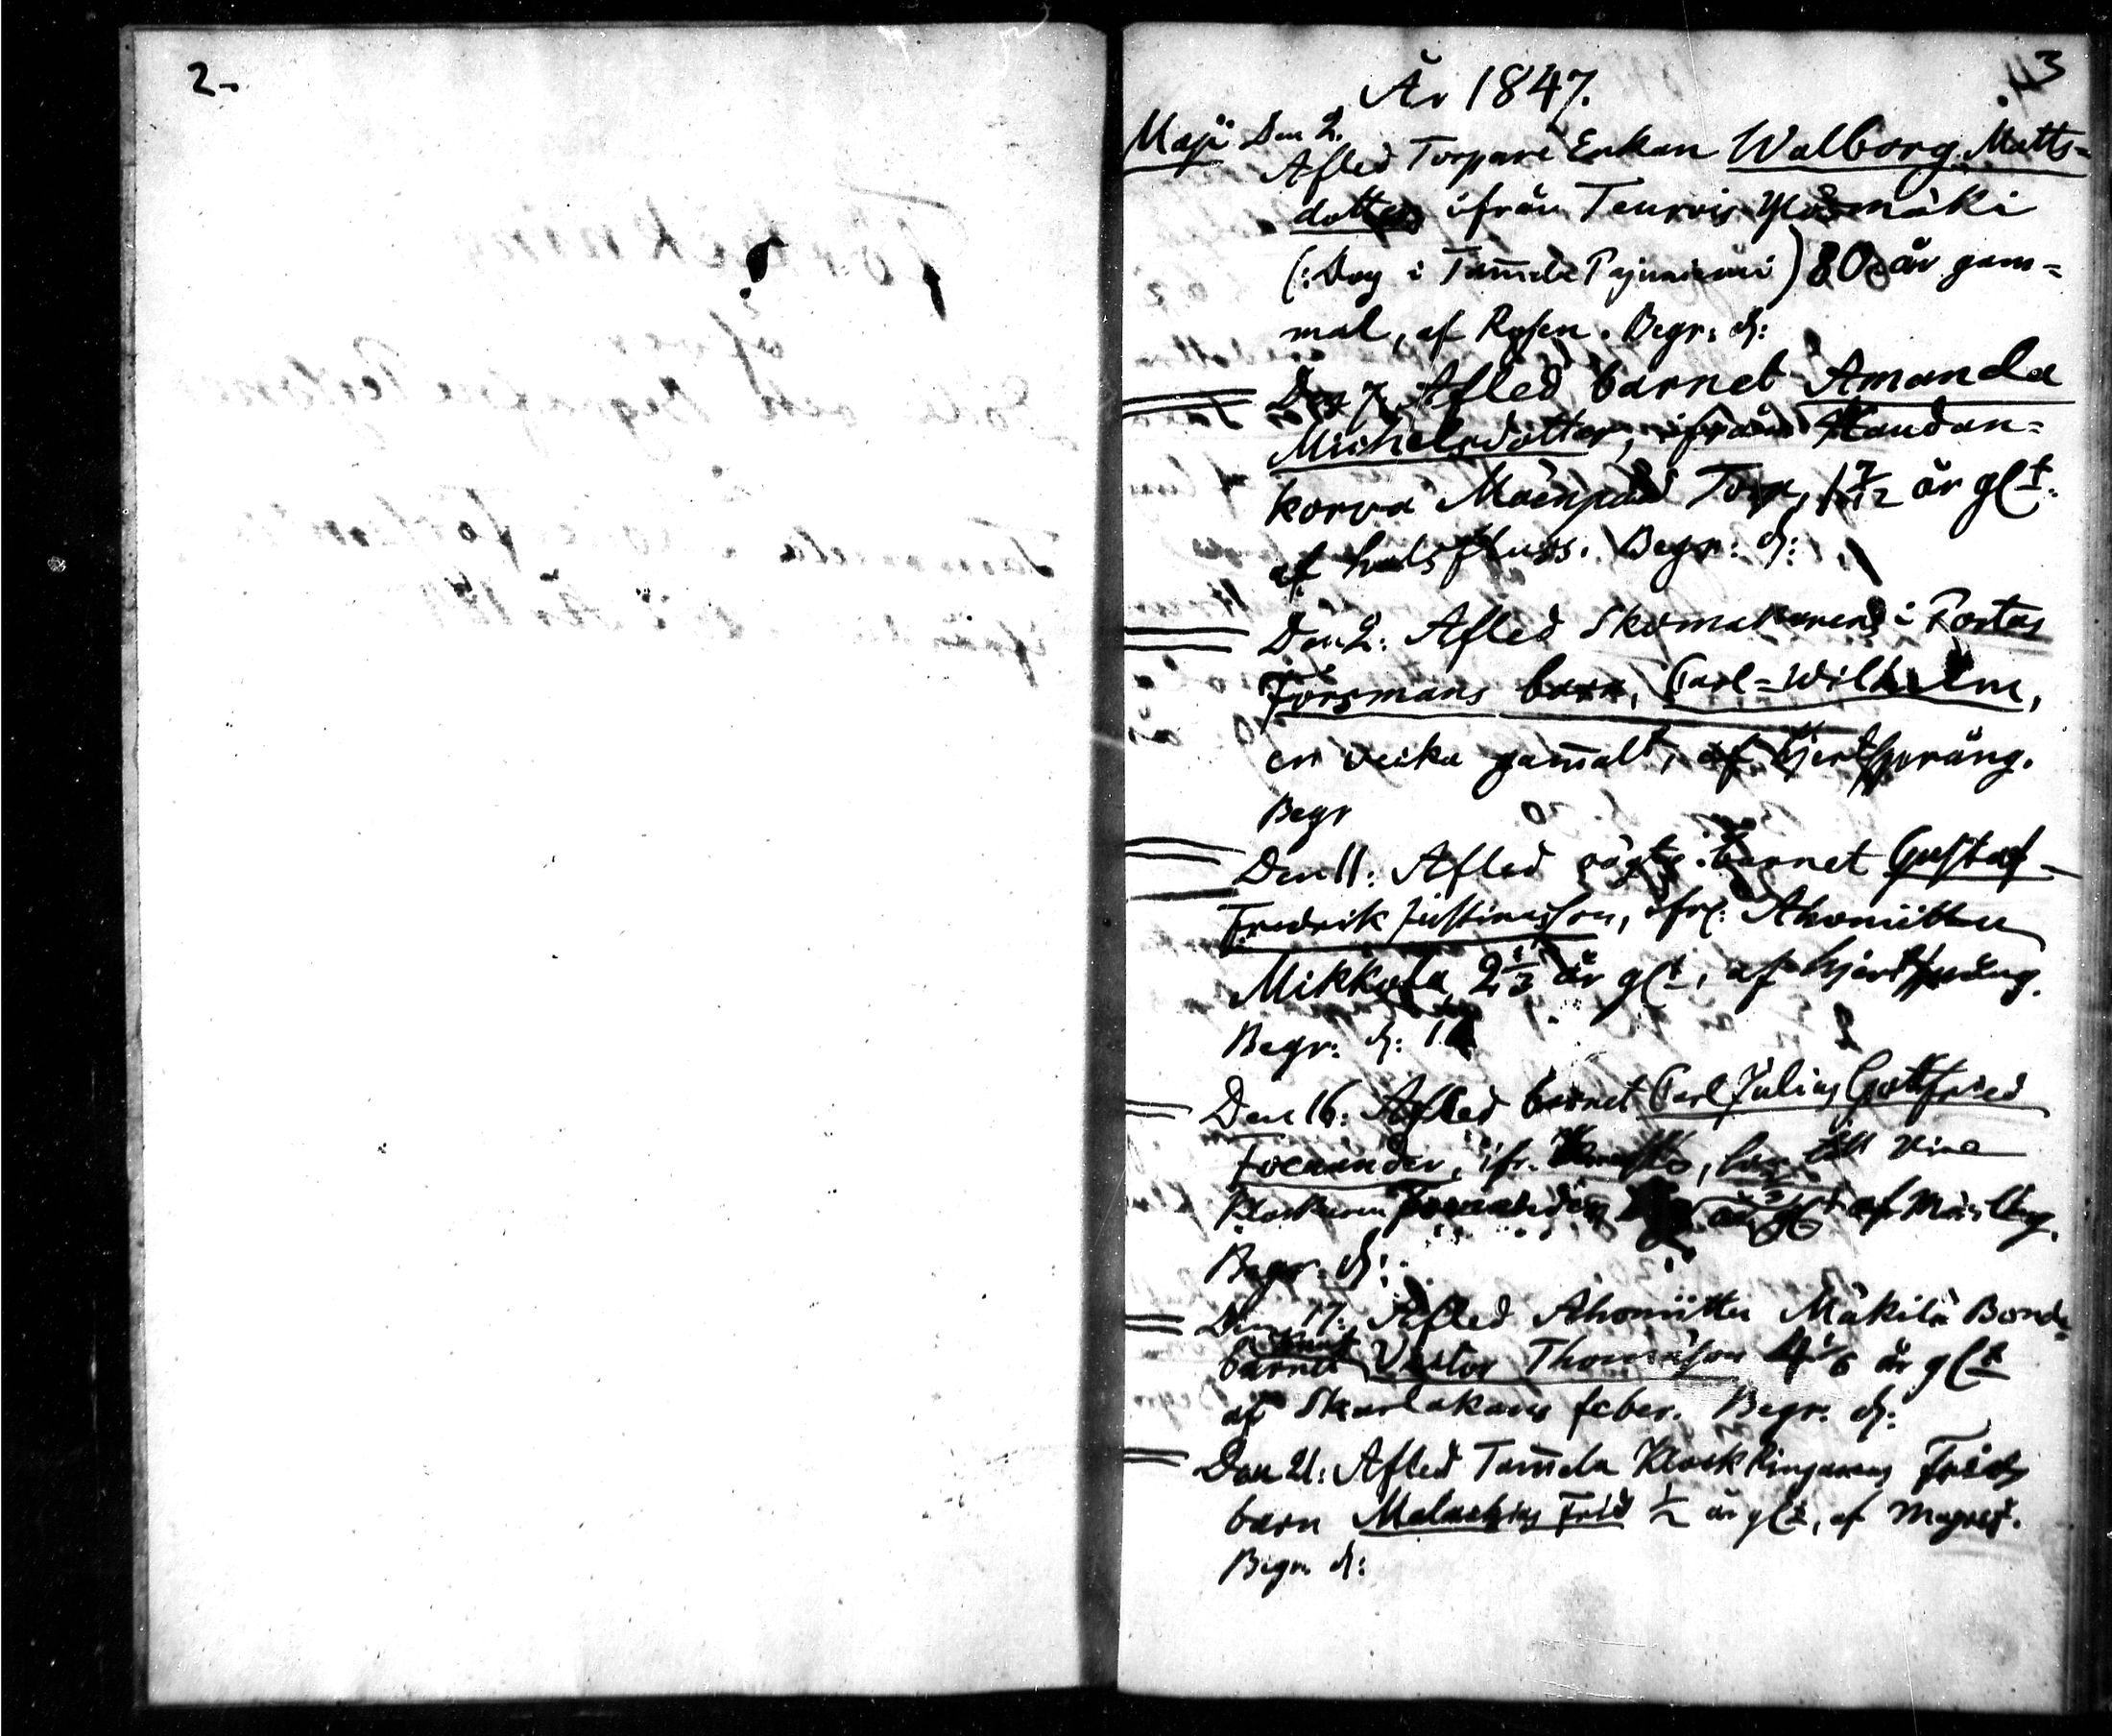 2.
3
År 1847.
Maji Den 2.
Afled Torpare Enkan Walborg Matts=
dotter ifrån Teuro Ylösmäki
(: Dog i Tam̄ela Pajuniemi) 80 år gam=
mal, af Rosen. Begr: d:
Den 7. Afled barnet Amanda
Michelsdotter, ifrån Haudan=
korva Mäenpää Torp, 1 7/12 år glt.
af halsfluss. Begr: d:
Den 2: Afled Skomakarens i Portas
Forsmans barn, Carl=Wilhelm,
en veika gam̄alt, af hjertspräng.
Begr
Den 11: Afled oägta barnet Gustaf
Fredrik Justinasson, ifr: Ahoniittu
Mikkola 2 1/3 år glt, af hjertspräng.
Begr: d:
Den 16: Afled barnet Carl Julius Gottfried
ifr. till
Klockaren af Mässling.
Begr. d:
Den 17: Afled Ahoniittu Mäkilä Bonde
barnet Knut Victor Thomasson 4 1/6 år glt
af Skarlakans feber. Begr. d:
Den 21: Afled Tam̄ela Klockringarens Frids
barn Malachias Frid 1/2 år glt, af Magref.
Begr. d: